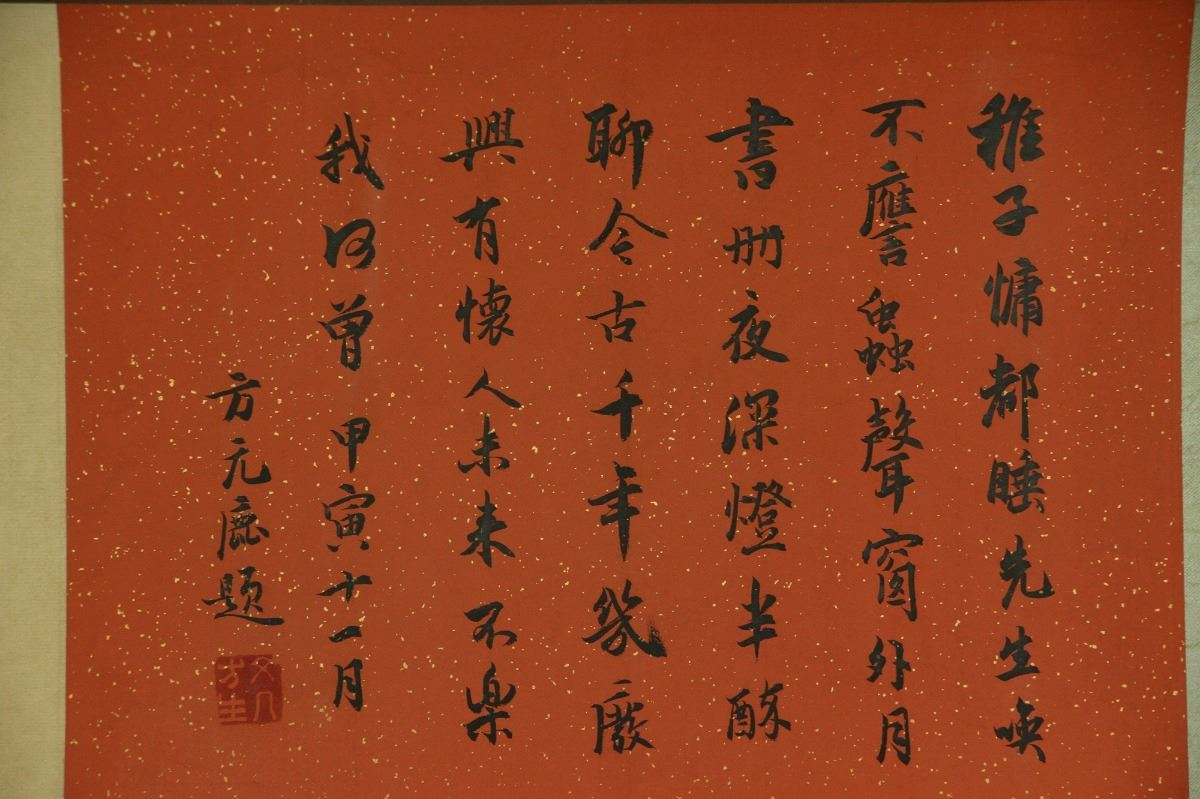 稚子慵都睡先生唤
不譍蟲聲窗外月
書册夜深燈半酥
聊今古千年幾廢
興有懷人未来不樂
我何曾甲寅十一月
方元鹿题